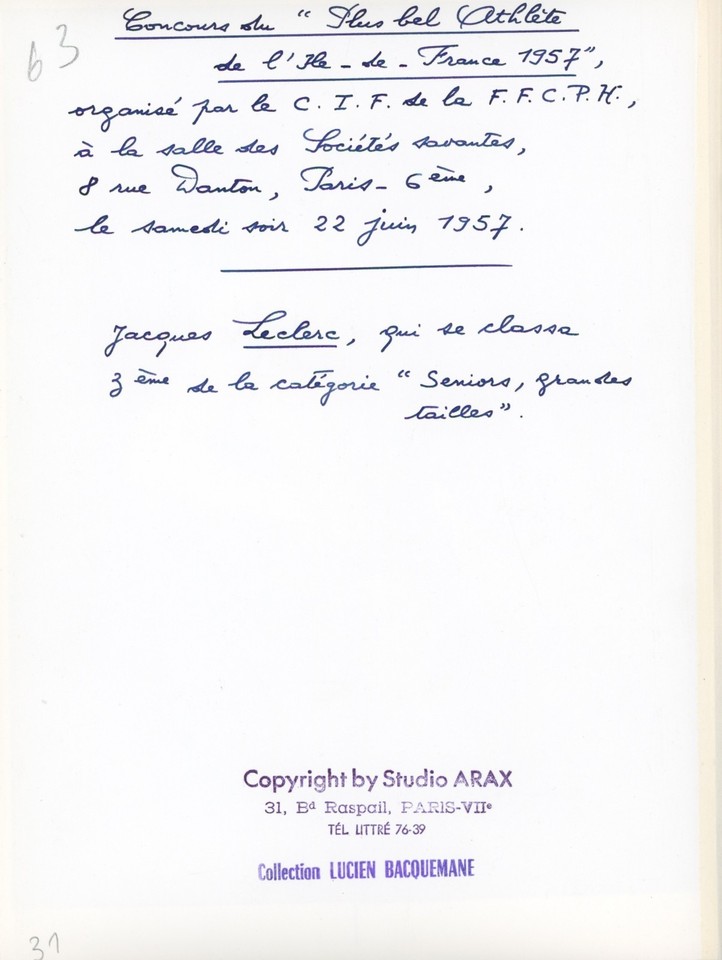 63
Concours du " Plus bel Athlète
de l'Ile - de - France 1957",
organisé par le C. I. F. de la F. F. C. P. H.,
à la salle des Sociétés savantes,
8 rue Danton, Paris - 6ème,
le samedi soir 22 juin 1957.
Jacques Leclerc, qui se classa
3ème de la catégorie " Seniors, grandes
tailles".
Copyright by Studio ARAX
31, Bd Raspail, PARIS-VIIe
TÉL LITTRÉ 76-39
Collection LUCIEN BACQUEMANE
31